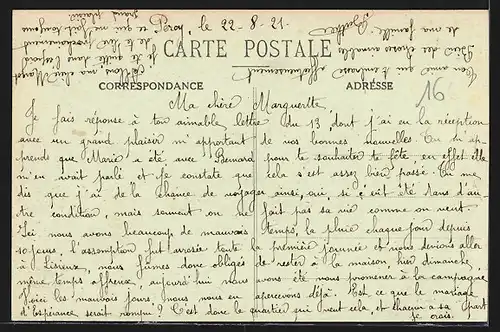 Percy, le 22-8-21.
CARTE POSTALE
CORRESPONDANCE
ADRESSE
16
Ma chère Marguerite
Je fais réponse à ton aimable lettre du 13, dont j'ai eu la réception
avec un grand plaisir m'apportant de vos bonnes nouvelles. Tu m'ap-
prends que Marie a été avec Bernard pour te souhaiter ta fête, en effet elle
m'en avait parlé et je constate que cela s'est assez bien passé. Tu me
dis que j'ai de la chance de voyager ainsi, oui, si c'était été dans d'au-
tre condition, mais souvent on ne fait pas sa vie comme on veut.
Ici nous avons beaucoup de mauvais temps, la pluie chaque jour depuis
10 jours l'assomption fut arrosée toute la première journée et nous devions aller
à Lisieux, nous fûmes donc obligés de rester à la maison hier dimanche,
même temps affreux, aujourd'hui nous avons été nous promener à la campagne
Voici les mauvais jours, nous nous en apercevons déjà. Est ce que le mariage
d'Espérance serait rompu ? C'est donc le quartier qui veut cela, et chacun à sa part
je crois.